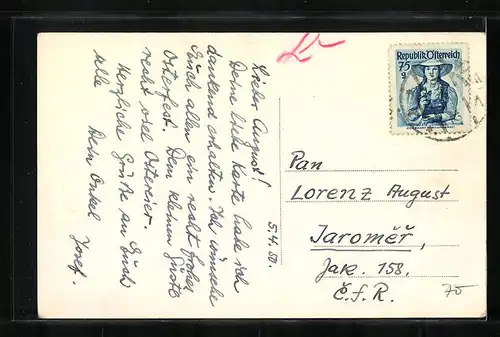 5.4.50.
Lieber August!
Deine liebe Karte habe ich
dankend erhalten. Ich wünsche
Euch allen ein recht frohes
Osterfest. Dem kleinen
recht viel Ostereier.
Herzliche Grüße an Euch
alle Dein Onkel Josef.
Republik Österreich
75
g
Pan
Lorenz August
Jaroměř,
Jak. 158.
Č.S.R.
75